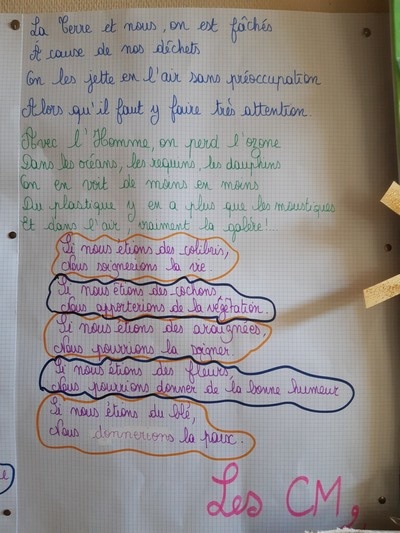 La Terre et nous, on est fâchés
À cause de nos déchets
On les jette en l'air sans préoccupation
Alors qu'il faut y faire très attention.
Avec l'Homme, on perd l'ozone
Dans les océans, les requins, les dauphins
On en voit de moins en moins
Du plastique y en a plus que les moustiques
Et dans l'air, vraiment la galère!
Si nous étions des colibris,
Nous soignerions la vie
Si nous étions des cochons
Nous apporterions de la végétation.
Si nous étions des araignées,
Nous pourrions la soigner.
Si nous étions des fleurs,
Nous pourrions donner de la bonne humeur
Si nous étions du blé,
Nous donnerions la paix.
Les CM